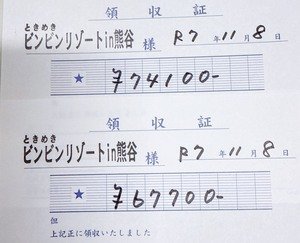 領収証
ときめき
ビンビンリゾートin熊谷 様 R7年11月8日
★ ¥774100-
領収証
ときめき
ビンビンリゾートin熊谷 様 R7年11月8日
★ ¥67700-
但
上記正に領収いたしました